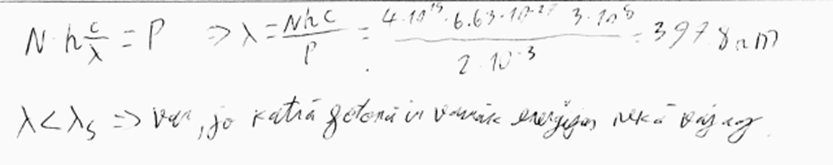 N · h c/λ = P => λ = Nhc/P = 4·10^15·6.63·10^-27 3·10^8 / 2·10^-3 = 397.8 nm
λ<λ_s => var, jo katrā fotonā ir vairāk enerģijas nekā vajag.